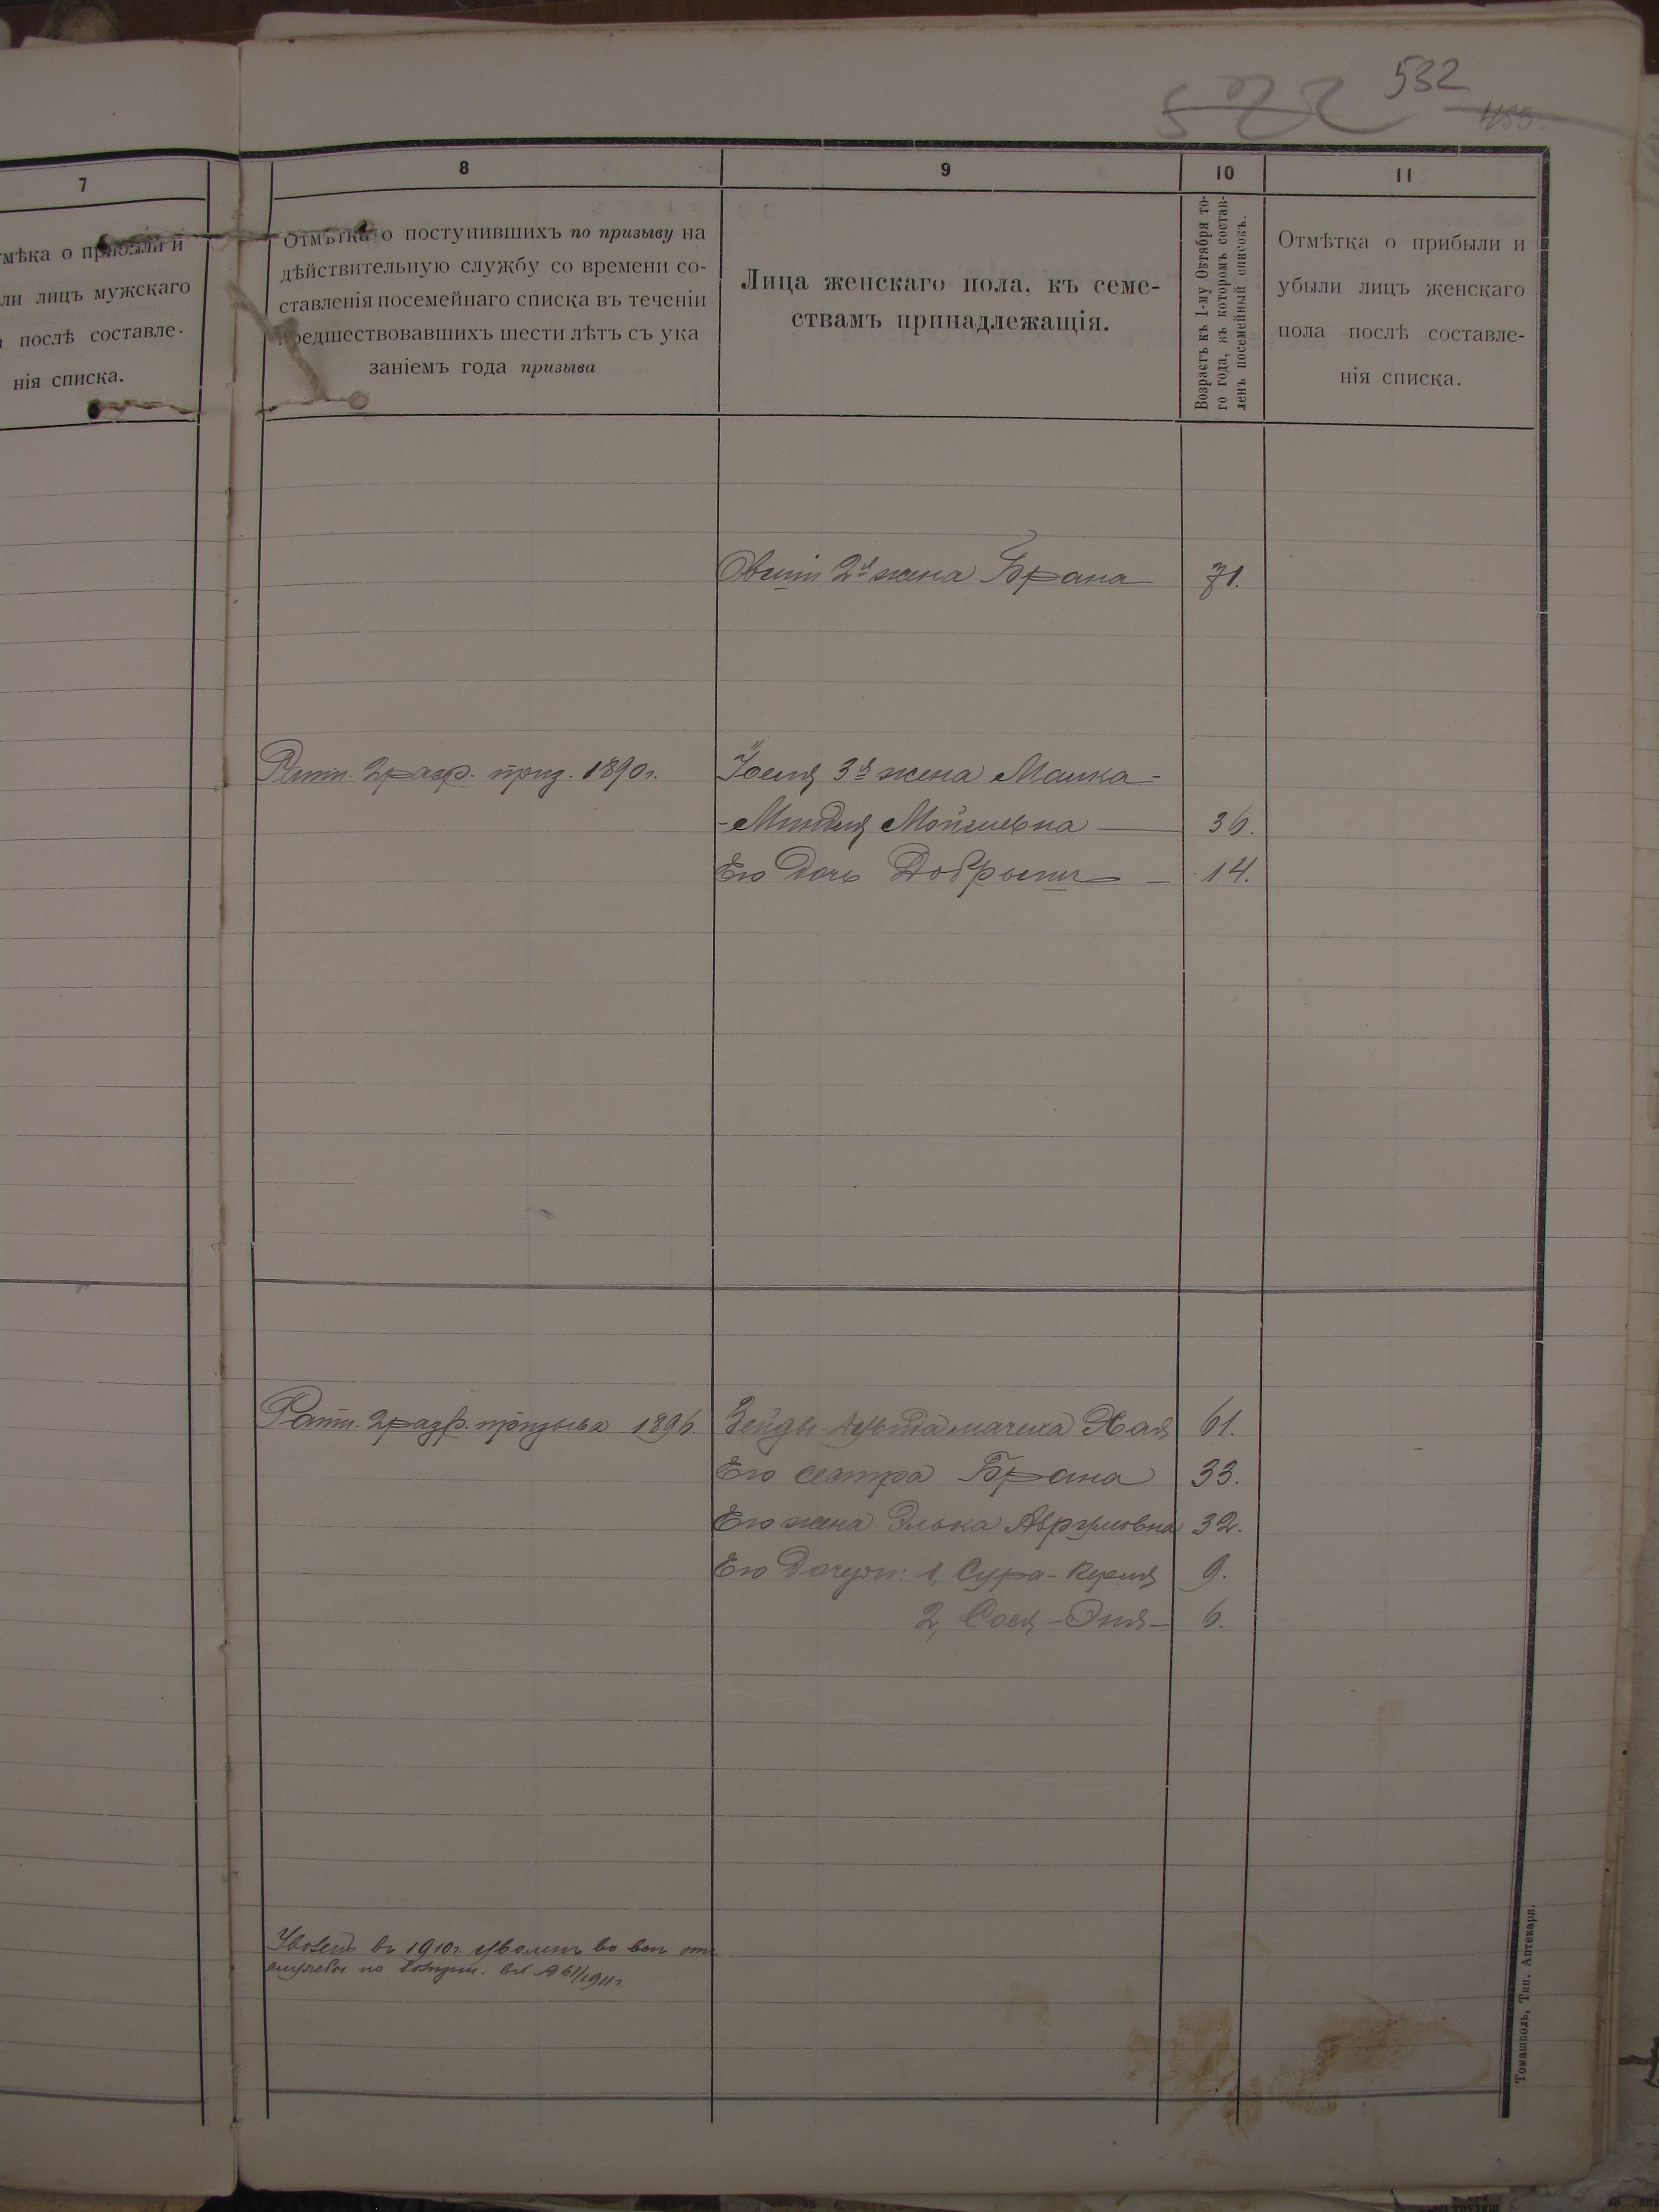 532
453.
7
8
9
10
11
мѣка о прибыли и
ли лицъ мужскаго
послѣ составле-
нія списка.
Отмѣтка о поступившихъ по призыву на
дѣйствительную службу со времени со-
ставленія посемейнаго списка въ теченіи
предшествовавшихъ шести лѣтъ съ ука
заніемъ года призыва
Лица женскаго пола, къ семе-
ствамъ принадлежащія.
Возрастъ къ 1-му Октября то-
го года, къ которомъ состав-
ленъ посемейный списокъ.
Отмѣтка о прибыли и
убыли лицъ женскаго
пола послѣ составле-
нія списка.
2я жена Брана 71.
Ратн. 2 разр. приз. 1890 г. Іосія 3я жена Малка-
-Миндля Мойшевна — 36.
Его дочь Добрыш — 14.
Ратн. 2 разр. призыва 1896 Зейды мачеха Хая 61.
Его сестра Брана 33.
Его жена Элька Аврумовна 32.
Его дочери: 1, Сура- 9.
2, Сося-Эня- 6.
въ 1910 г. уволенъ во вся отъ
службы по вх. № 61/1911 г.
Томашполь, Тип. Аптекаря.